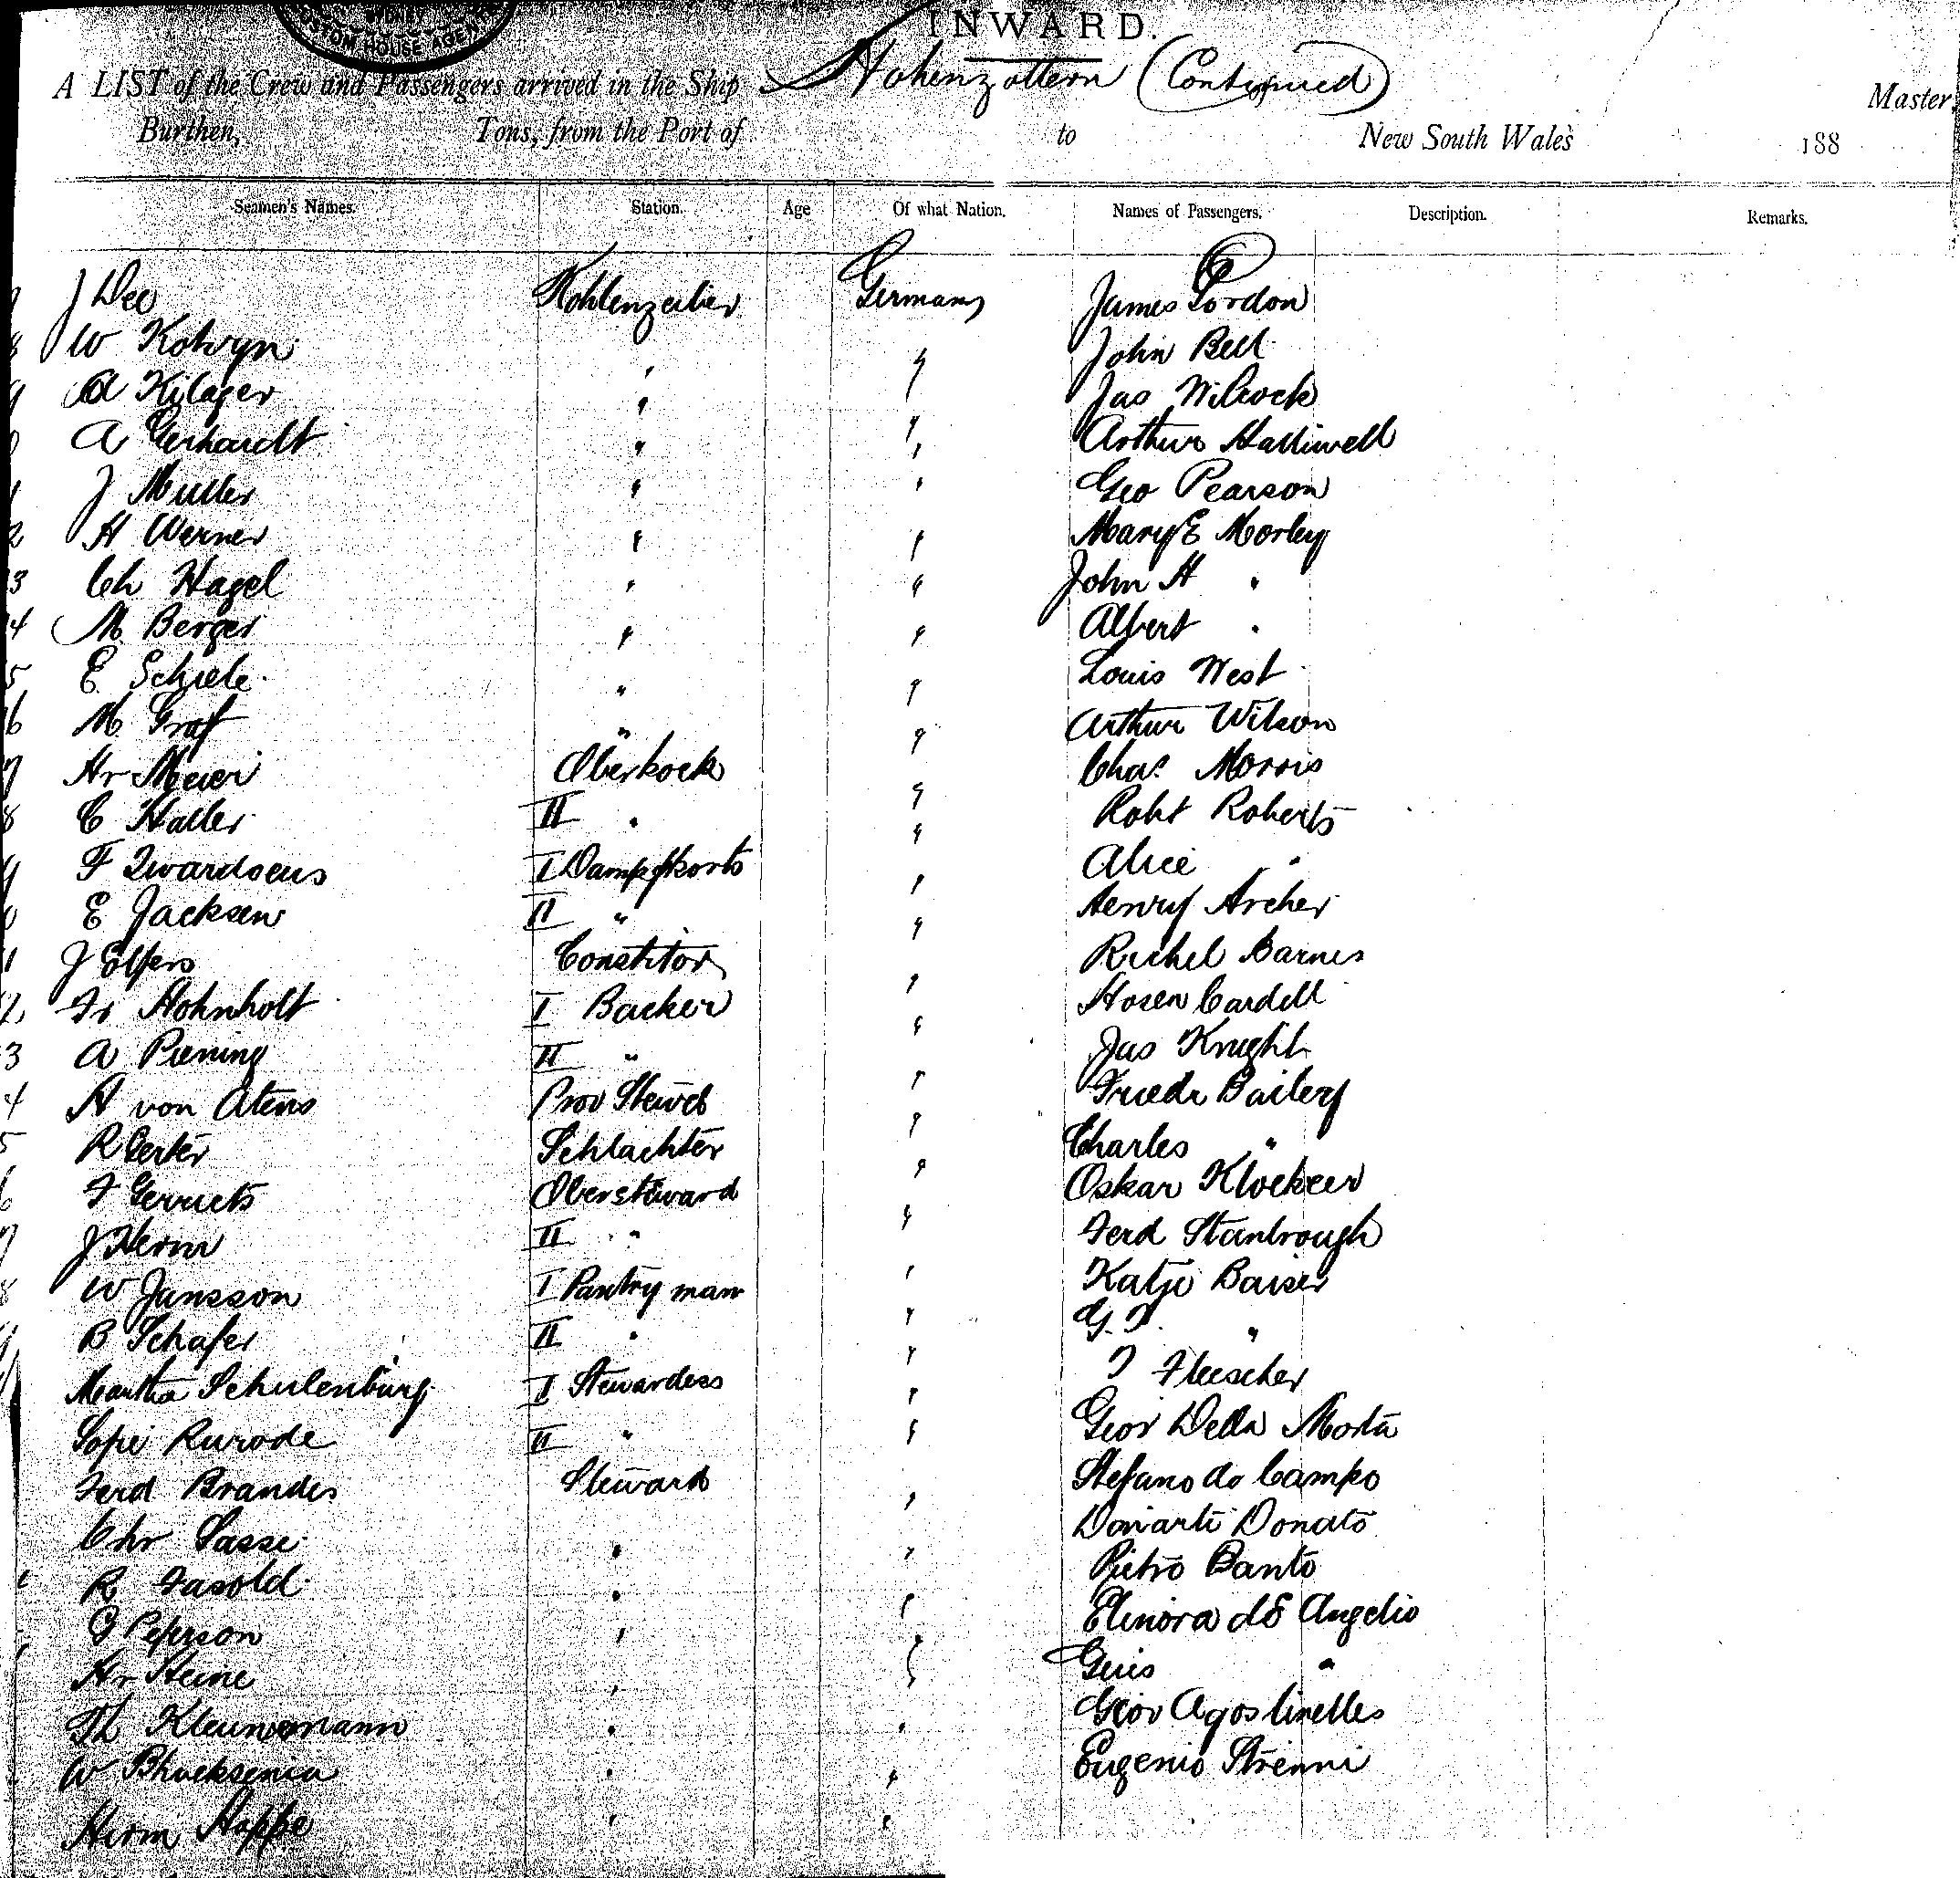 SYDNEY
CUSTOM HOUSE AGENT
INWARD.
A LIST of the Crew and Passengers arrived in the Ship Hohenzollern (Continued) Master
Burthen, Tons, from the Port of to New South Wales 188
Seamen's Names. Station. Age Of what Nation. Names of Passengers. Description. Remarks.
J Dee Kohlenzeiher Germany James Gordon
W Kotwyn " " John Bell
A Kilager " " Jas Wilcock
A Gerhardt " " Arthur Halliwell
J Muller " " Geo Pearson
2 H Werner " " Mary E Morley
3 Ch Hagel " " John H "
4 M Berger " " Albert "
5 E Schiele " " Louis West
6 M Graf " " Arthur Wilson
7 Hr Meier Oberkock " Chas Morris
8 C Haller II " " Robt Roberts
9 F I " Alice "
E Jacksen II " " Henry Archer
1 J Elfers " Barnes
2 Fr Hohnholt I Backer " Cardell
3 A Piening II " " Jas Knight
4 H von Atens Prov Stewd " Friedr Bailey
5 R Oerter Schlachter " Charles "
6 F Gerruets Obersteward " Oskar Klockeer
7 J Herm II " " Ferd Stanbrough
8 W Jansson I Pantry man " Katje Baiser
B Schafer II " " G. F. "
Martha Schulenburg I Stewardess " Fleescher
Sofie Rurode II " " Giov Della Motta
Ferd Brandes Steward " Stefano do Campo
Chr Sasse " " Donato
R Fasold " " Pietro Banto
Peterson " " Elinora dE Angelio
Hr Heine " " "
Th " " Giov Agostinelles
W " " Eugenio Strenni
Herm Hoppe " "